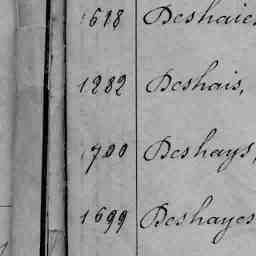 1618 Deshaies
1282 Deshais,
1700 Deshays,
1699 Deshayes